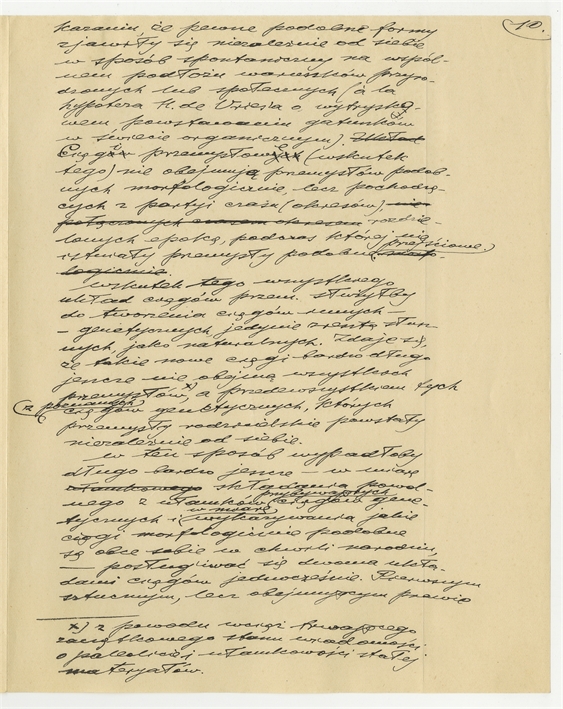 10.
kazaniu, że pewne podobne formy
zjawiły się niezależnie od siebie
w sposób spontaniczny na wspól-
nem podłożu warunków przyro-
dzonych lub społecznych (à la
hypoteza H. de Vriesa o wytrysko-
wem powstawaniu gatunków
w świecie organicznym). Układ
Ciągów przemysłowych (wskutek
tego) nie obejmuje przemysłów podob-
nych morfologicznie, lecz pochodzą-
cych z partyj czasu (okresów) nie
połączonych czasem okresem rozdzie-
lonych epoką, podczas której nie
istniały przemysły podobne przejściowe.
logicznie.
Wskutek tego wszystkiego
układ ciągów przem. służyłby
do tworzenia ciągów innych –
– genetycznych, jedynie zresztą słusz-
nych jako naturalnych. Zdaje się,
że takie nowe ciągi bardzo długo
jeszcze nie obejmą wszystkich
przemysłów x), a przedewszystkiem tych
z poznanych
ciągów genetycznych, których
przemysły rodzicielskie powstały
niezależnie od siebie.
W ten sposób wypadłoby
długo bardzo jeszcze – w miarę
ułamkowego składania powol-
nego z ułamków przybywających ciągów gene-
tycznych i w miarę wykazywania jakie
ciągi morfologicznie podobne
są obce sobie w chwili narodzin,
— posługiwać się dwoma ukła-
dami ciągów jednocześnie. Pierwszym
sztucznym, lecz obejmującym prawie
x) z powodu wciąż trwającego
zaczątkowego stanu wiadomości
o paleolicie i ułamkowości stałej
materyałów.